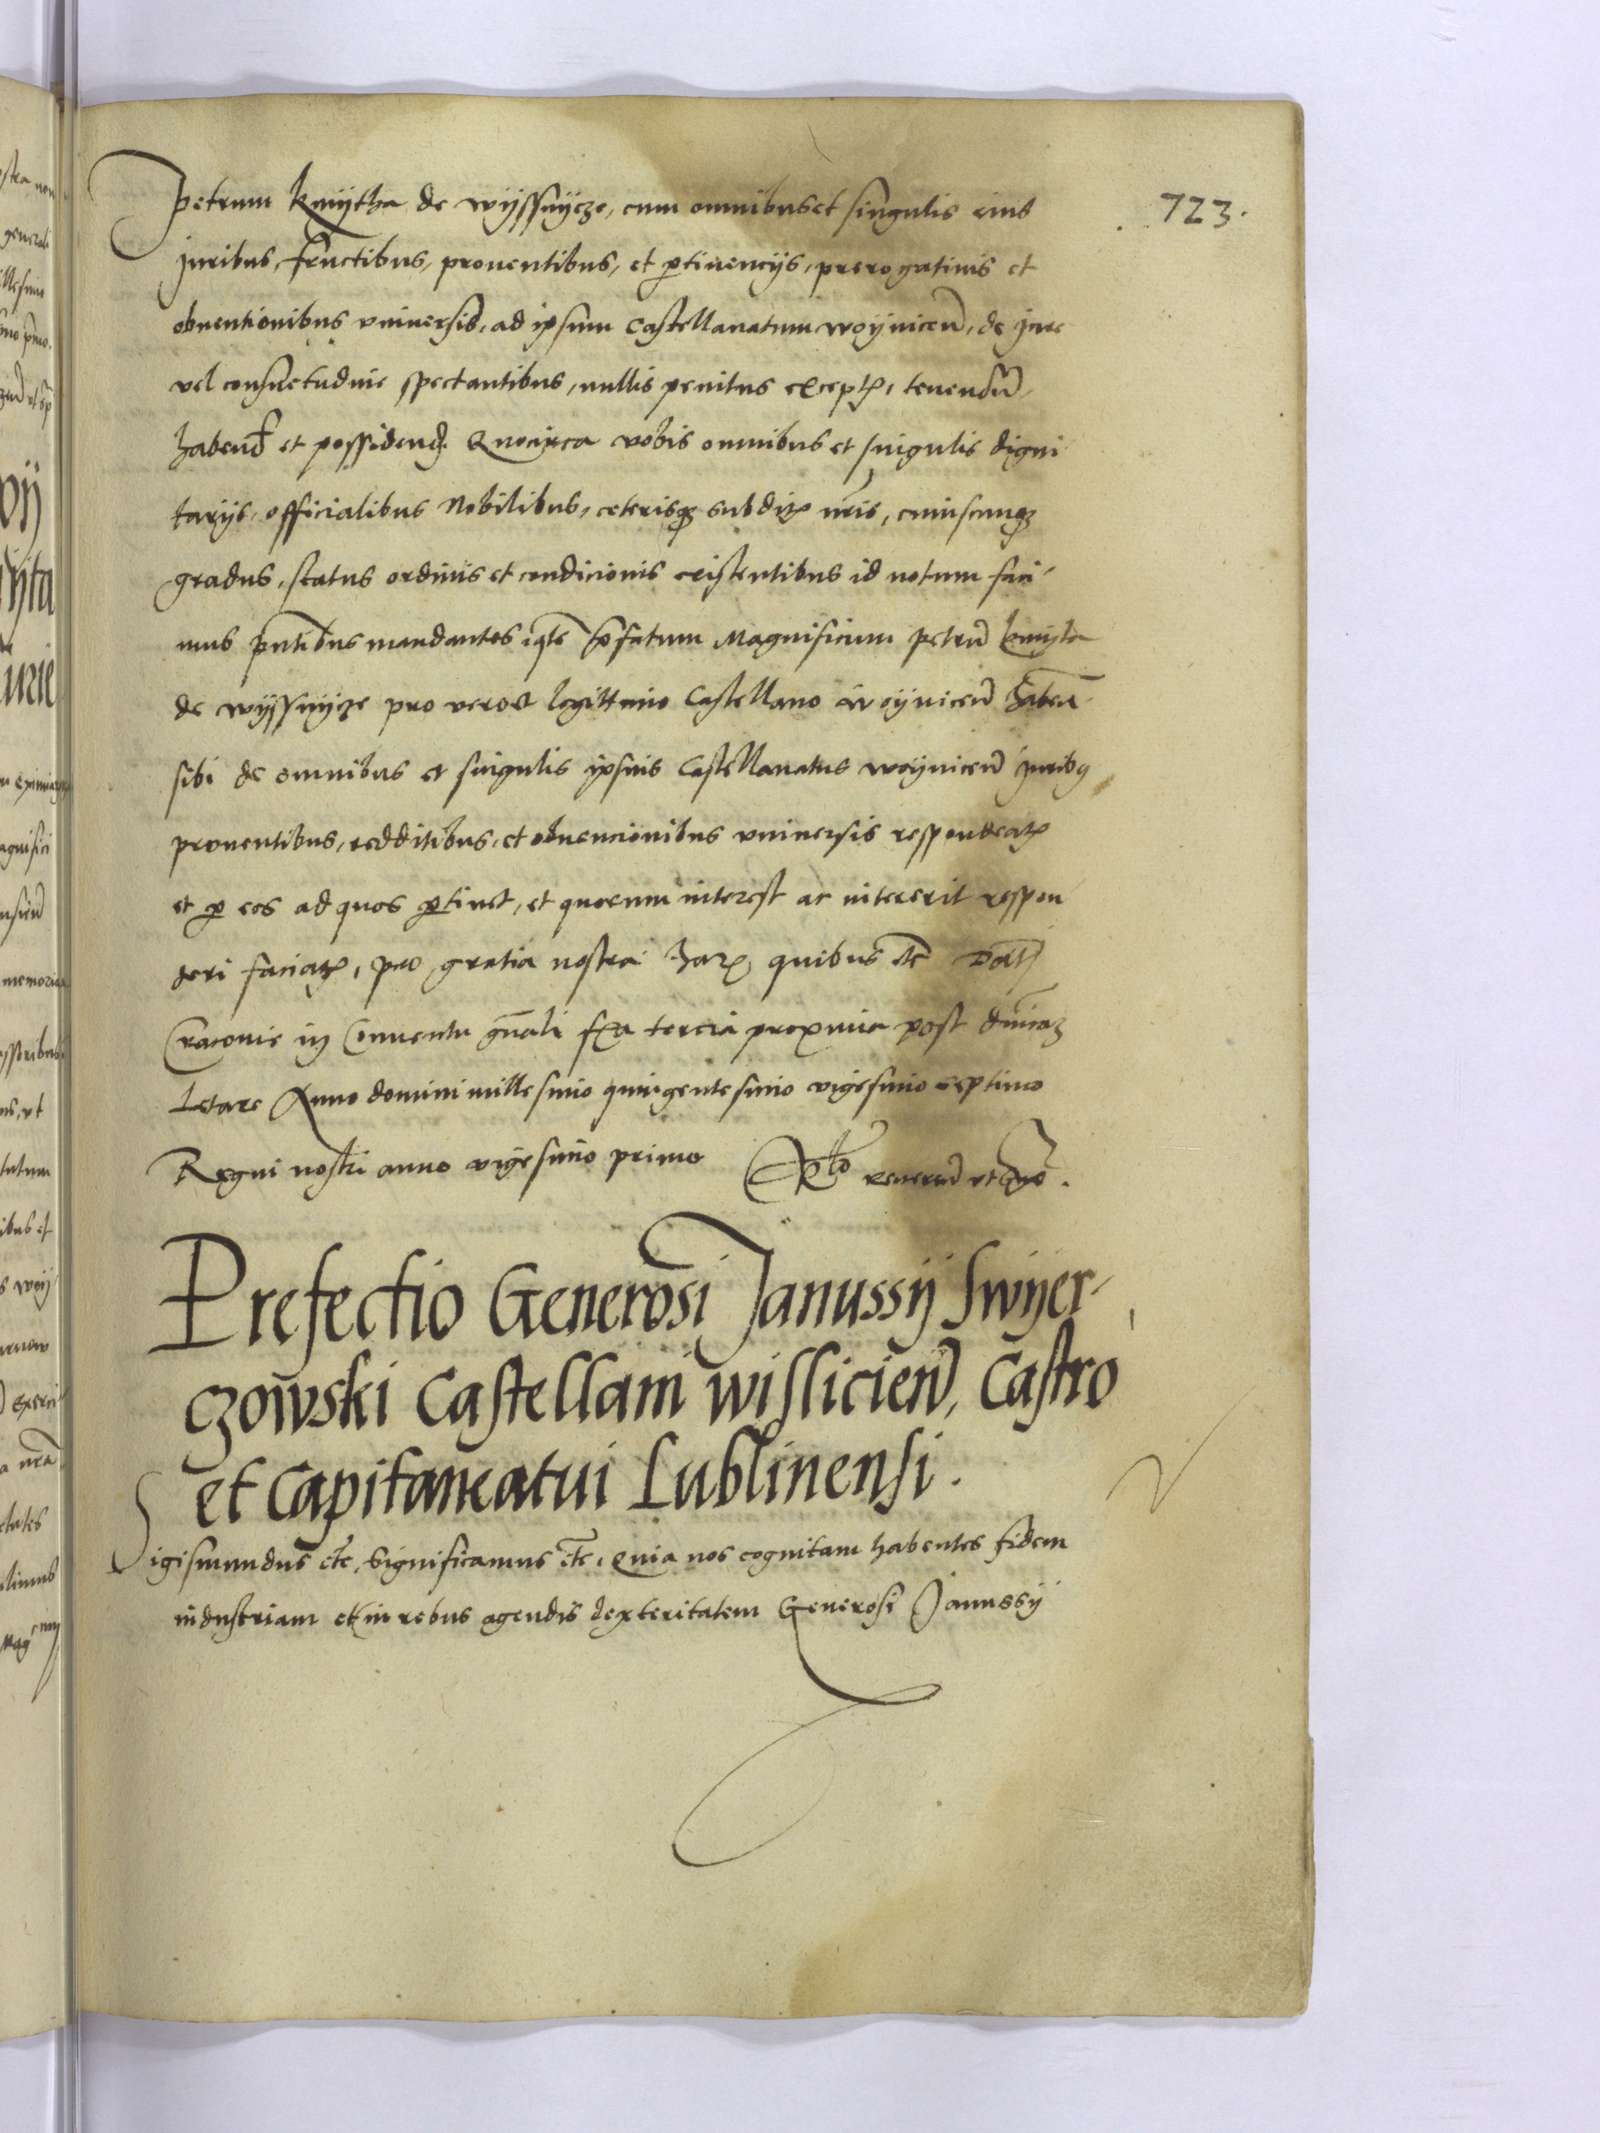 723.
Petrum kmijtha de wijssnijcze, cum omnibus et singulis eius
juribus, fructibus, proventibus, et pertinencijs, prerogativis et
obventionibus universis, ad ipsum Castellanatum woijniceñ, de jure
vel consuetudine spectantibus, nullis penitus exceptis, tenendũ
habend et possidend. Quocirca vobis omnibus et singulis digni
tarijs, officialibus Nobilibus, ceterisque subditis nr̃is, cuiuscunque
gradus, status ordinis et condicionis existentibus id notum faci
mus pn̄tibus mandantes quate prefatum Magnificum petrũ kmijta
de wijssnijcze pro vero et legittimo Castellano woijniceñ habeñ
sibi de omnibus et singulis ipsius Castellanatus woijniceñ juribus
proventibus, redditibus, et obvencionibus universis respondeatis
et per eos ad quos pertinet, et quorum interest ac intererit respon
deri faciatis, pro gratia nostra. harum quibus etc̃ Dat̃
Cracovie in Conventu gñali fe͞a tercia proxima post dñicam
Letare Anno domini millesimo quingentesimo vigesimo septimo
Regni nostri anno vigesimo primo Rl̃o reverend ut
Prefectio Generosi Janussij Swijer-
czowski Castellani wislicieñ, Castro
et Capitaneatui Lublinensi.
Sigismundus etc̃, Significamus etc̃, Quia nos cognitam habentes fidem
industriam et in rebus agendis dexteritatem Generosi Janussij